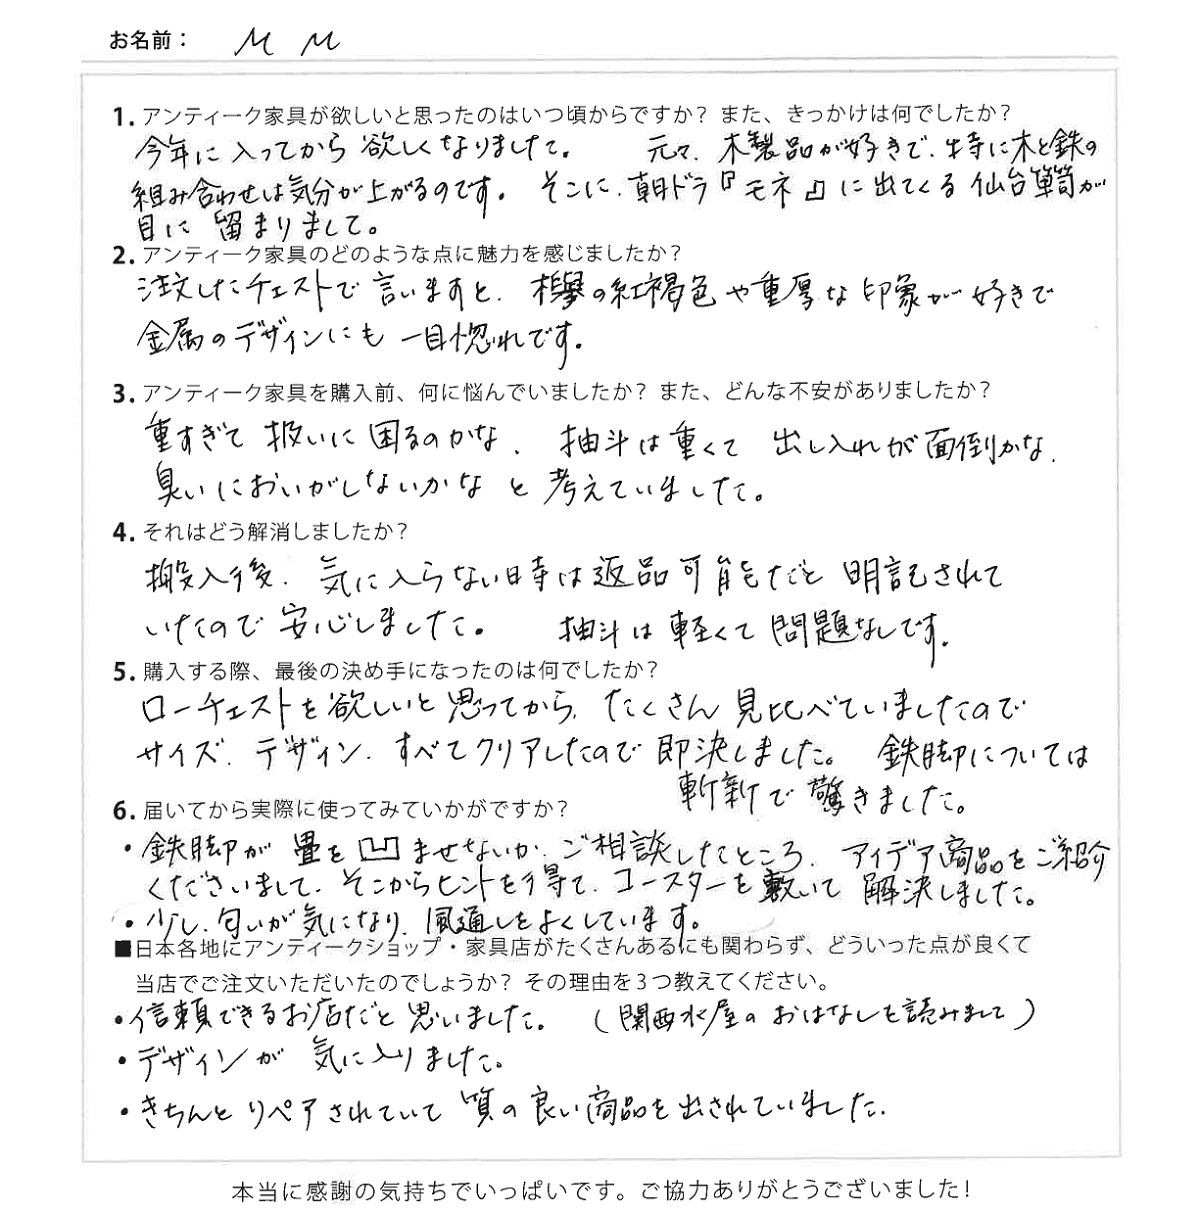 お名前： M M
1. アンティーク家具が欲しいと思ったのはいつ頃からですか？ また、きっかけは何でしたか？
今年に入ってから欲しくなりました。 元々、木製品が好きで、特に木と鉄の
組み合わせは気分が上がるのです。そこに、朝ドラ『モネ』に出てくる仙台箪笥が
目に留まりまして。
2. アンティーク家具のどのような点に魅力を感じましたか？
注文したチェストで言いますと、欅の紅褐色や重厚な印象が好きで
金属のデザインにも一目惚れです。
3. アンティーク家具を購入前、何に悩んでいましたか？ また、どんな不安がありましたか？
重すぎて扱いに困るのかな、抽斗は重くて出し入れが面倒かな、
臭いにおいがしないかなと考えていました。
4. それはどう解消しましたか？
搬入後、気に入らない時は返品可能だと明記されて
いたので安心しました。 抽斗は軽くて問題なしです。
5. 購入する際、最後の決め手になったのは何でしたか？
ローチェストを欲しいと思ってから、たくさん見比べていましたので
サイズ、デザイン、すべてクリアしたので即決しました。 鉄脚については
斬新で驚きました。
6. 届いてから実際に使ってみていかがですか？
・鉄脚が畳を凹ませないか、ご相談したところ、アイデア商品をご紹介
くださいまして、そこからヒントを得て、コースターを敷いて解決しました。
・少し、匂いが気になり、風通しをよくしています。
■日本各地にアンティークショップ・家具店がたくさんあるにも関わらず、どういった点が良くて
当店でご注文いただいたのでしょうか？ その理由を３つ教えてください。
・信頼できるお店だと思いました。（関西水屋のおはなしを読みまして）
・デザインが気に入りました。
・きちんとリペアされていて質の良い商品を出されていました。
本当に感謝の気持ちでいっぱいです。ご協力ありがとうございました！